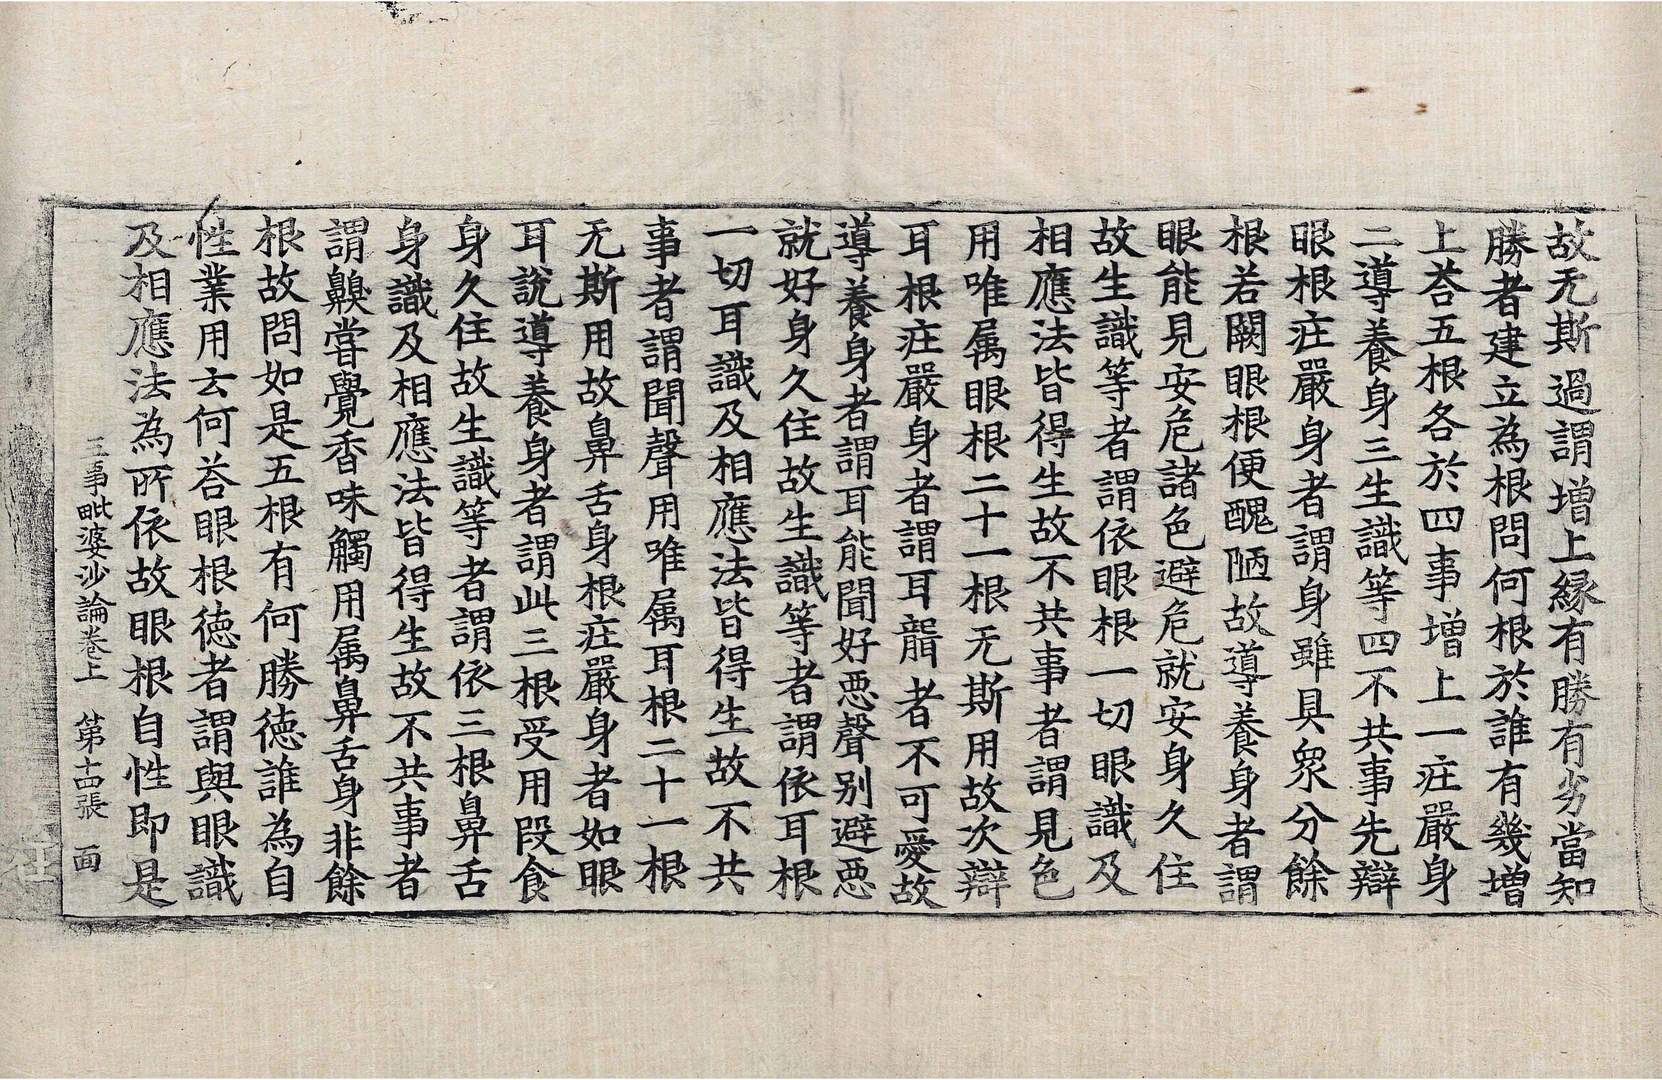 故无斯過謂增上縁有勝有劣當知
勝者建立為根問何根於誰有幾增
上荅五根各於四事增上一㽵嚴身
二導養身三生識等四不共事先辯
眼根㽵嚴身者謂身雖具衆分餘
根若闕眼根便醜陋故導養身者謂
眼能見安危諸色避危就安身久住
故生識等者謂依眼根一切眼識及
相應法皆得生故不共事者謂見色
用唯属眼根二十一根无斯用故次辯
耳根㽵嚴身者謂耳聾者不可愛故
導養身者謂耳能聞好惡聲别避惡
就好身久住故生識等者謂依耳根
一切耳識及相應法皆得生故不共
事者謂聞聲用唯属耳根二十一根
无斯用故鼻舌身根㽵嚴身者如眼
耳說導養身者謂此三根受用段食
身久住故生識等者謂依三根鼻舌
身識及相應法皆得生故不共事者
謂齅甞覺香味觸用属鼻舌身非餘
根故問如是五根有何勝徳誰為自
性業用云何荅眼根徳者謂與眼識
及相應法為所依故眼根自性即是
五事毗婆沙論卷上 第十四張 面